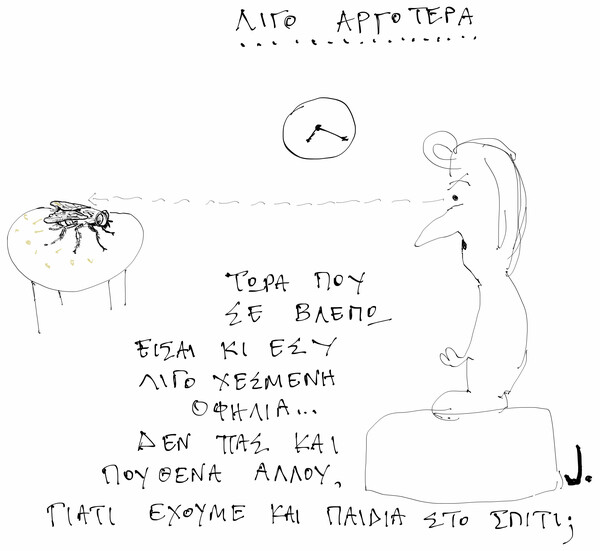 ΛΙΓΟ ΑΡΓΟΤΕΡΑ
ΤΩΡΑ ΠΟΥ
ΣΕ ΒΛΕΠΩ
ΕΙΣΑΙ ΚΙ ΕΣΥ
ΛΙΓΟ ΧΕΣΜΕΝΗ
ΟΦΗΛΙΑ...
ΔΕΝ ΠΑΣ ΚΑΙ
ΠΟΥΘΕΝΑ ΑΛΛΟΥ,
ΓΙΑΤΙ ΕΧΟΥΜΕ ΚΑΙ ΠΑΙΔΙΑ ΣΤΟ ΣΠΙΤΙ;
J.